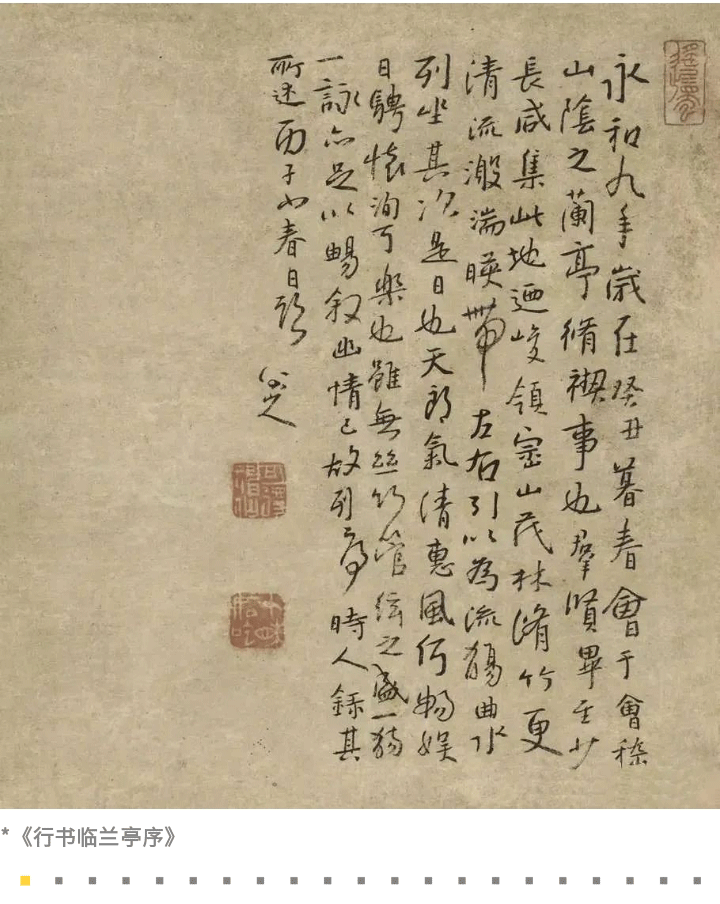 永和九年歲在癸丑暮春會于會稽
山陰之蘭亭脩禊事也羣賢畢至少
長咸集此地迺峻領崇山茂林脩竹更
清流激湍暎帶左右引以為流觴曲水
列坐其次是日也天朗氣清惠風何暢娛
日騁懷洵可樂也雖無絲竹管絃之盛一觴
一詠亦足以暢敘幽情已故列序時人錄其
所述丙子小春日題
八大山人
*《行书临兰亭序》